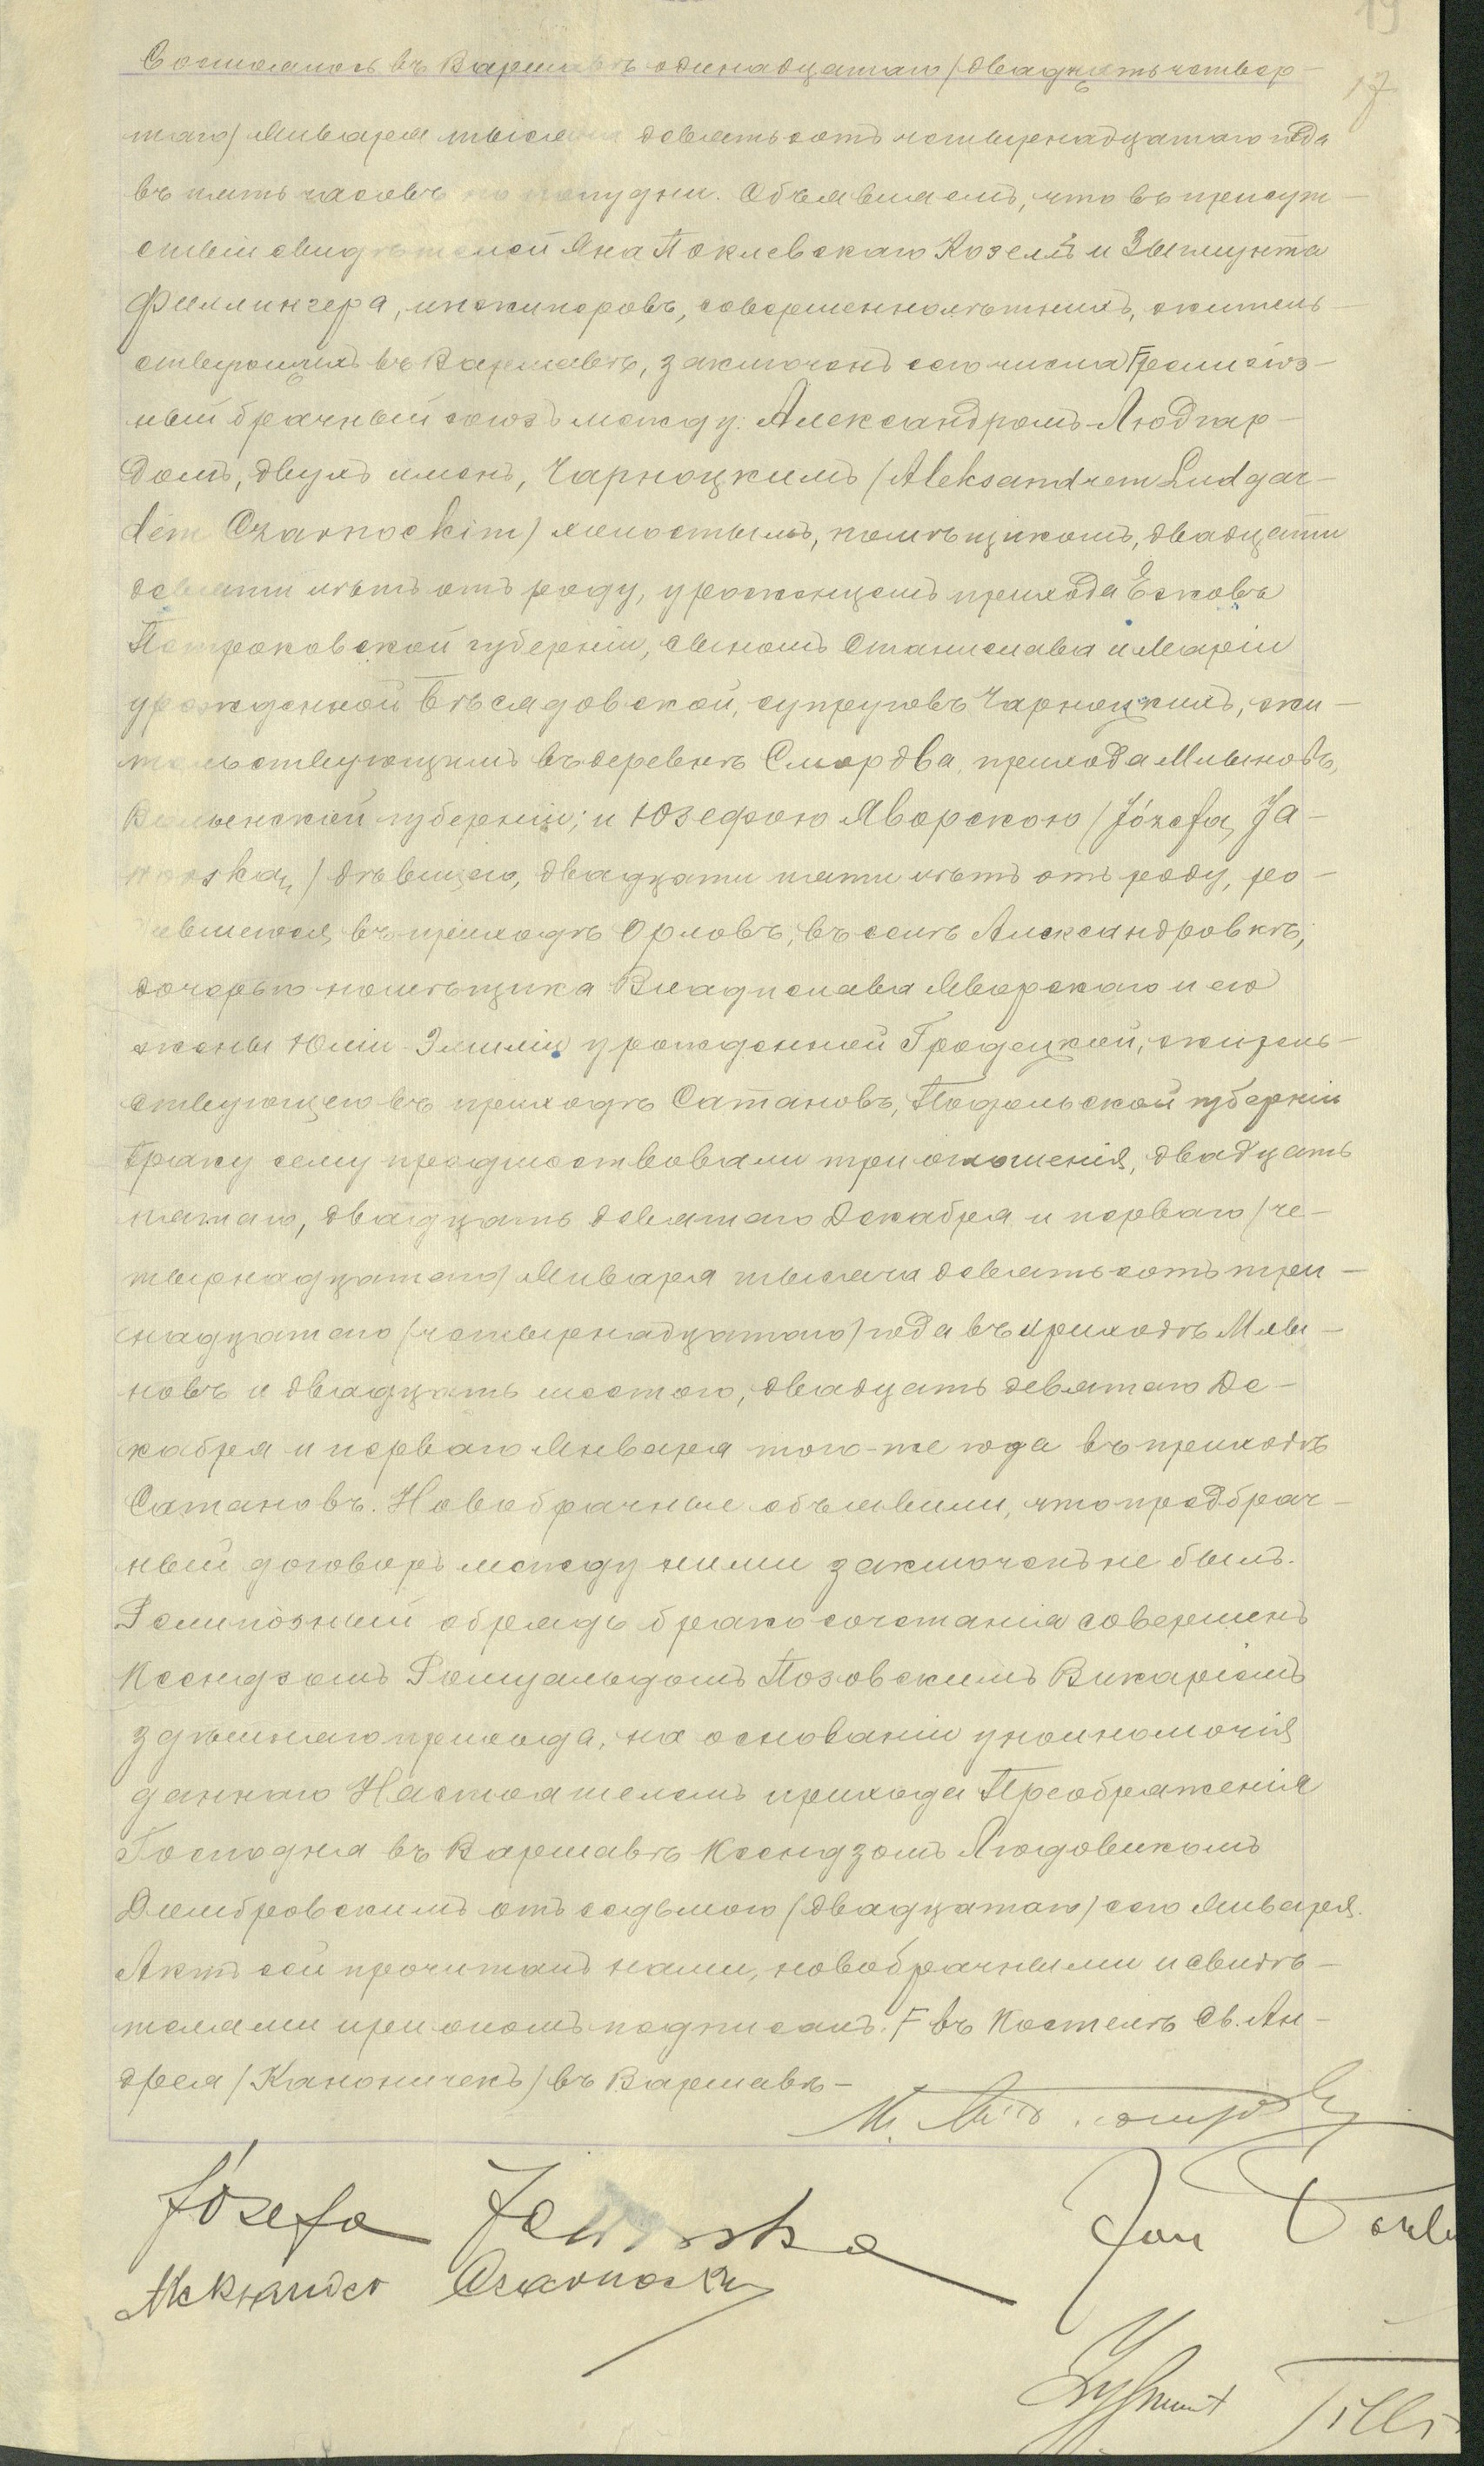 19
17
Состоялось въ Варшавѣ одинадцатаго /двадцать четвер-
таго/ Января тысяча девятьсотъ четырнадцатаго года
въ пять часовъ по полудни. Объявляемъ, что въ присут-
ствіи свидѣтелей Яна Поклевскаго Козеллъ и Зыгмунта
Филлингера, инженеровъ, совершеннолѣтнихъ, житель-
ствующихъ въ Варшавѣ, заключенъ сего числа F религіоз-
ный брачный союзъ между: Александромъ-Людгар-
домъ, двухъ именъ, Чарноцкимъ /Aleksandrem Ludgar-
dem Czarnockim/ холостымъ, помѣщикомъ, двадцати
девяти лѣтъ отъ роду, урожденцемъ прихода Ежовъ
Петроковской губерніи, сыномъ Станислава и Маріи
урожденной Бѣсядовской, супруговъ Чарноцкихъ, жи-
тельствующимъ въ деревнѣ Смордва, прихода Млыновъ,
Волынской губерніи; и Юзефою Яворскою /Józefą Ja-
worską/ дѣвицею, двадцати пяти лѣтъ отъ роду, ро-
дившеюся въ приходѣ Орловъ, въ селѣ Александровкѣ,
дочерью помѣщика Владислава Яворскаго и его
жены Юліи-Эмиліи урожденной Гродецкой, житель-
ствующею въ приходѣ Сатановъ, Подольской губерніи
Браку сему предшествовали три оглашенія, двадцать
пятаго, двадцать девятаго Декабря и перваго /че-
тырнадцатаго/ Января тысяча девятьсотъ три-
надцатаго /четырнадцатаго/ года въ приходѣ Млы-
новъ и двадцать шестого, двадцать девятаго Де-
кабря и перваго Января того-же года въ приходѣ
Сатановъ. Новобрачные объявили, что предбрач-
ный договоръ между ними заключенъ не былъ.
Религіозный обрядъ бракосочетанія совершенъ
Ксендзомъ Ромуальдомъ Позовскимъ Викаріемъ
здѣшняго прихода, на основаніи уполномочія
даннаго Настоятелемъ прихода Преображенія
Господня въ Варшавѣ Ксендзомъ Людовикомъ
Дембровскимъ отъ седьмого /двадцатаго/ сего Января.
Актъ сей прочитанъ нами, новобрачными и свидѣ-
телями при ономъ подписанъ. F въ Костелѣ Св. Ан-
дрея /Каноничекъ/ въ Варшавѣ-
Józefa Jaworska
Jan
Aleksander Czarnocki
Zygmunt Filli